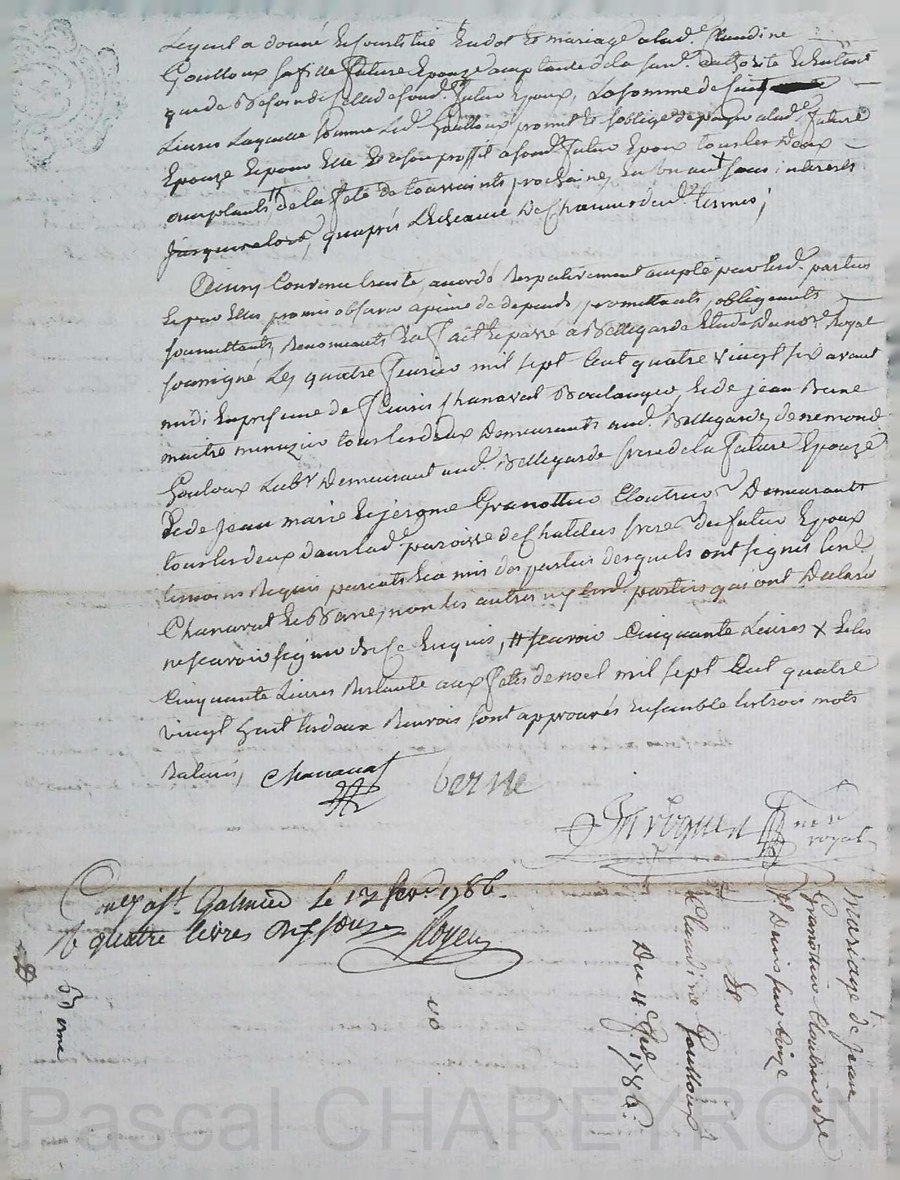 Lequel a donné et constitué en dot et mariage a lad.e Claudine
Goulloux sa fille future Epouze acceptante de la sud. authorité
que de Besoin dud. futur Epoux, La somme de Cent
Livres Laquelle somme Led. Goulloux promet et s'oblige de payer a lad.e future
Epouze et pour Elle et a son proffit aSond. futur Epoux tous les deux
acceptants # de la fete de toussaints prochaine, en un an + sans interets
jusques alors, qu'aprés L'echeance De Chacun desd. termes;
Ainsy Convenu traité, accordé Respectivement accepté par lesd. parties
et par Elles promis observer a peine de depends, promettants, obligeants
soumettants, Renonceants &a fait et passé a Bellegarde Etude Du no.re Royal
soussigné Les quatre fevrier mil sept Cent quatre vingt six avant
midi En presence de fleuris Chanavat Boulanger, et de jean Berne
maitre menuzier tous les deux Demeurants aud. Bellegarde, de nemond
Gouloux Lab.r Demeurant aud. Bellegarde frere de la future Epouze
Et de Jean marie et jérome Granottier Cloutrier Demeurants
tous les deux dans lad.e paroisse de Chatelus freres du futur Epoux
temoins Requis parents et amis des parties desquels ont signés lesd.
Chanavat et Berne, non les autres ny lesd. parties qui ont Declaré
ne scavoir signer de ce Enquis, # scavoir Cinquante Livres + et les
Cinquante Livres Restante aux fetes de noel mil sept Cent quatre
vingt huit les deux Renvois sont approuvés Ensemble les trois mots
Raturés,
Chanavat
berne
no.re
royal
Con.lé a S.t Galmier le 12 fevr. 1786.
R quatre livres dix sous
Mariage de Jean
Granottier Cloutrier de
S.t Denis sur Coize
Et
Claudine Goulloux
Du 4.e fév. 1786.
Berne
Pascal CHAREYRON